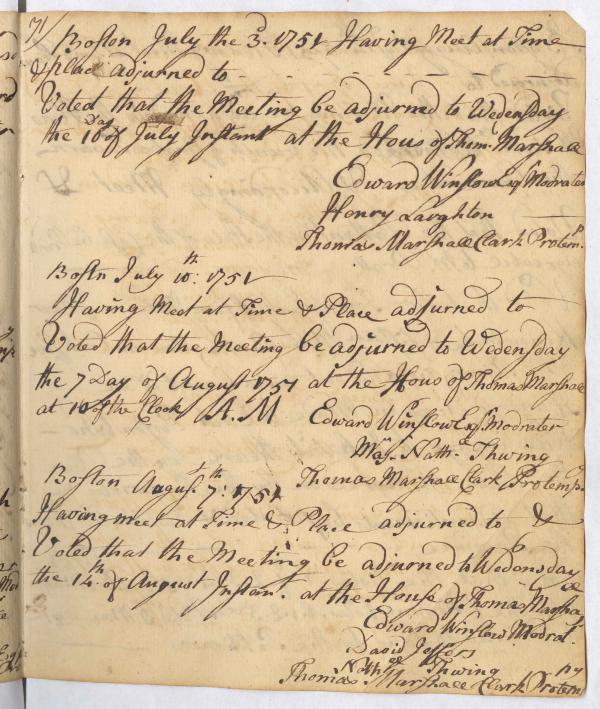 71/ Boston July the 3d. 1751 Having Meet at Time
& place adjurned to - - - - - -
Voted that the Meeting be adjurned to Wedensday
the 10 Day of July Instant at the Hous of Thom. Marshall
Edward Winslow Esqr Modrater
Henry Laughton
Thomas Marshall Clark Protemp.
Bostn July 10th: 1751
Having Meet at Time & Place adjurned to
Voted that the Meeting be adjurned to Wedensday
the 7 Day of August 1751 at the Hous of Thomas Marshall
at 10 of the Clook A.M
Edward Winslow Esqr Modrater
Maj. Nathll Thwing
Thomas Marshall Clark Protemp.
Boston August 7th: 1751
Having meet at Time & Place adjurned to &
Voted that the Meeting be adjurned to Wedensday
the 14th of August Instant. at the House of Thomas Marshall
Edward Winslow Modratr.
David Jeffers
Nathll Thwing
Thomas Marshall Clark Protemp